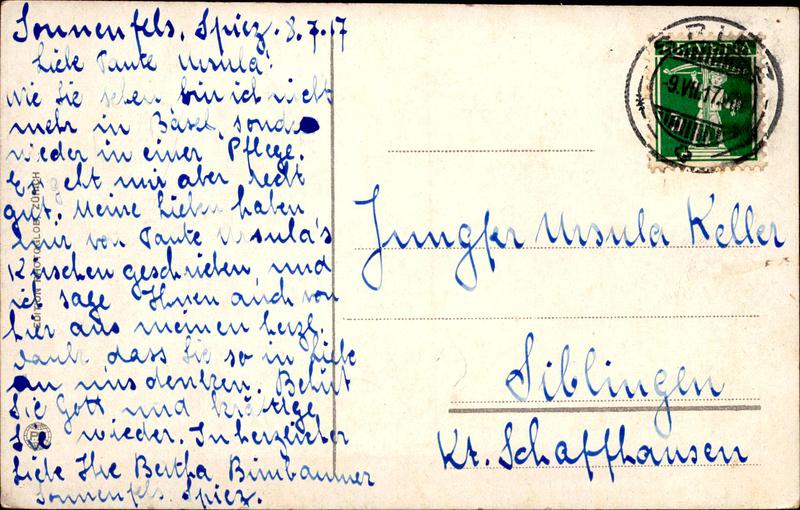 Sonnenfels, Spiez. 8.7.17
Liebe Tante Ursula!
Wie Sie sehen bin ich nicht
mehr in Basel, sondern
wieder in einer Pflege.
Es geht mir aber recht
gut. Meine Lieben haben
mir von Tante Ursula's
Kirschen geschrieben, und
ich sage Ihnen auch von
hier aus meinen herzl.
Dank dass Sie so in Liebe
an uns denken. Behüt
Sie Gott und kräftige
Sie wieder. In herzlicher
Liebe Ihre Bertha Birnbaumer
Sonnenfels Spiez.
EDITION PHOTOGLOB, ZÜRICH
SPIEZ
-9.VII.17.
Jungfr Ursula Keller
Siblingen
Kt. Schaffhausen